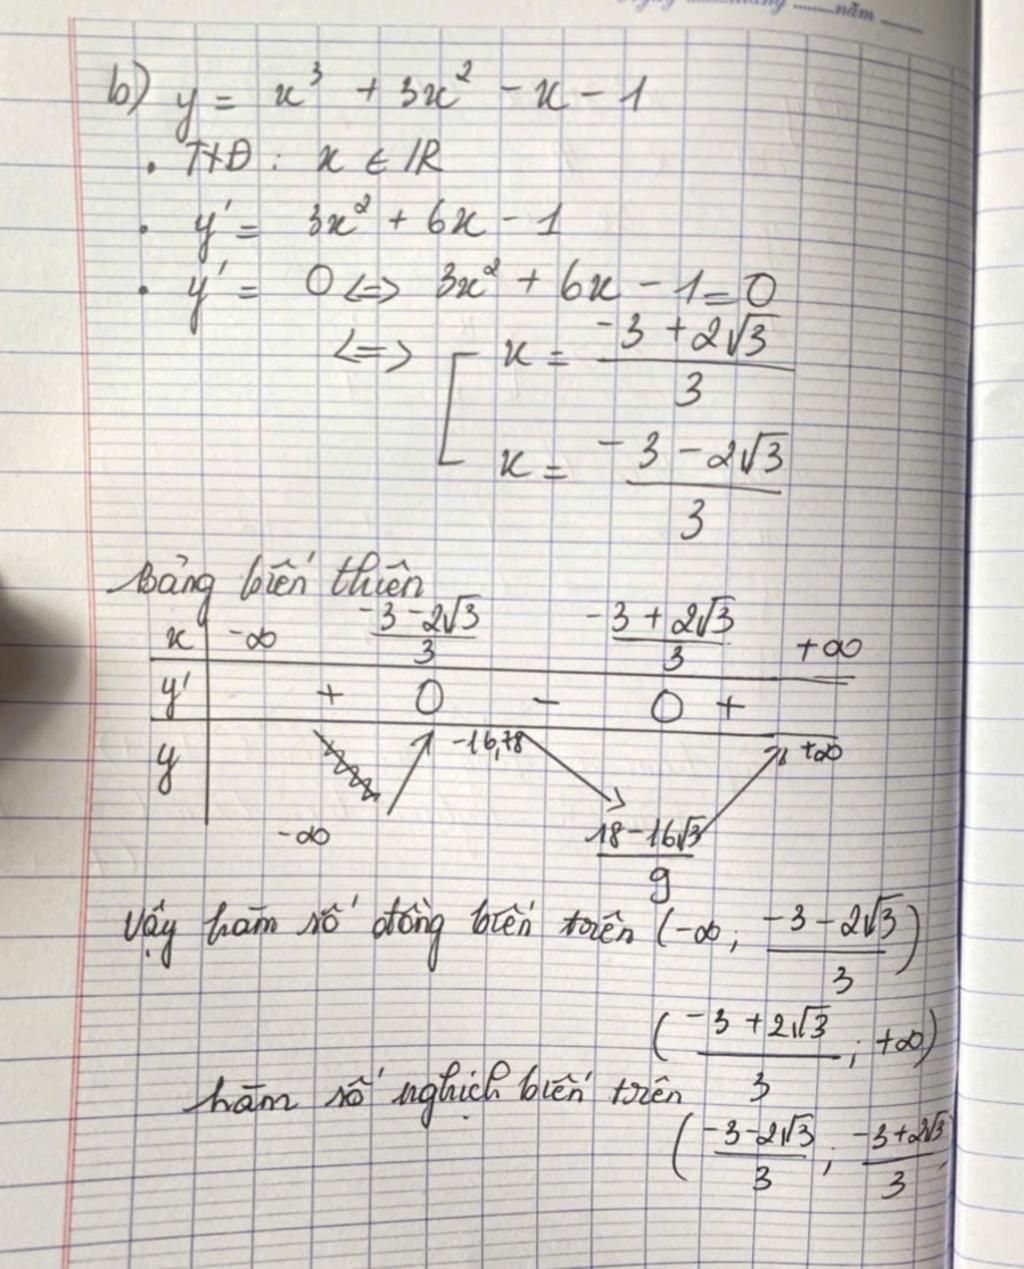 năm
b) y = x³ + 3x² - x - 1
. TXĐ : x ∈ IR
. y' = 3x² + 6x - 1
. y' = 0 <=> 3x² + 6x - 1 = 0
<=> [ x = (-3 + 2√3)/3
x = (-3 - 2√3)/3
Bảng biến thiên
x -∞ (-3 - 2√3)/3 (-3 + 2√3)/3 +∞
y' + 0 - 0 +
y -∞ ↗ -16,78 ↘ (18 - 16√3)/9 ↗ +∞
Vậy hàm số đồng biến trên (-∞ ; (-3 - 2√3)/3)
((-3 + 2√3)/3 ; +∞)
hàm số nghịch biến trên
((-3 - 2√3)/3 ; (-3 + 2√3)/3